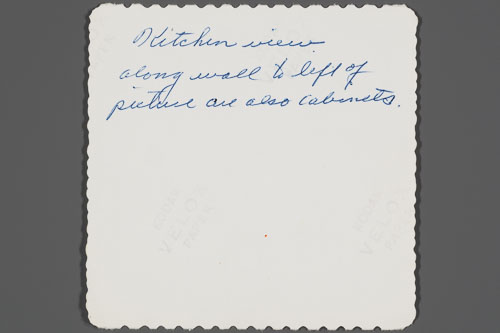 Kitchen view
along wall to left of
picture are also cabinets.
KODAK
VELOX
PAPER
KODAK
VELOX
PAPER